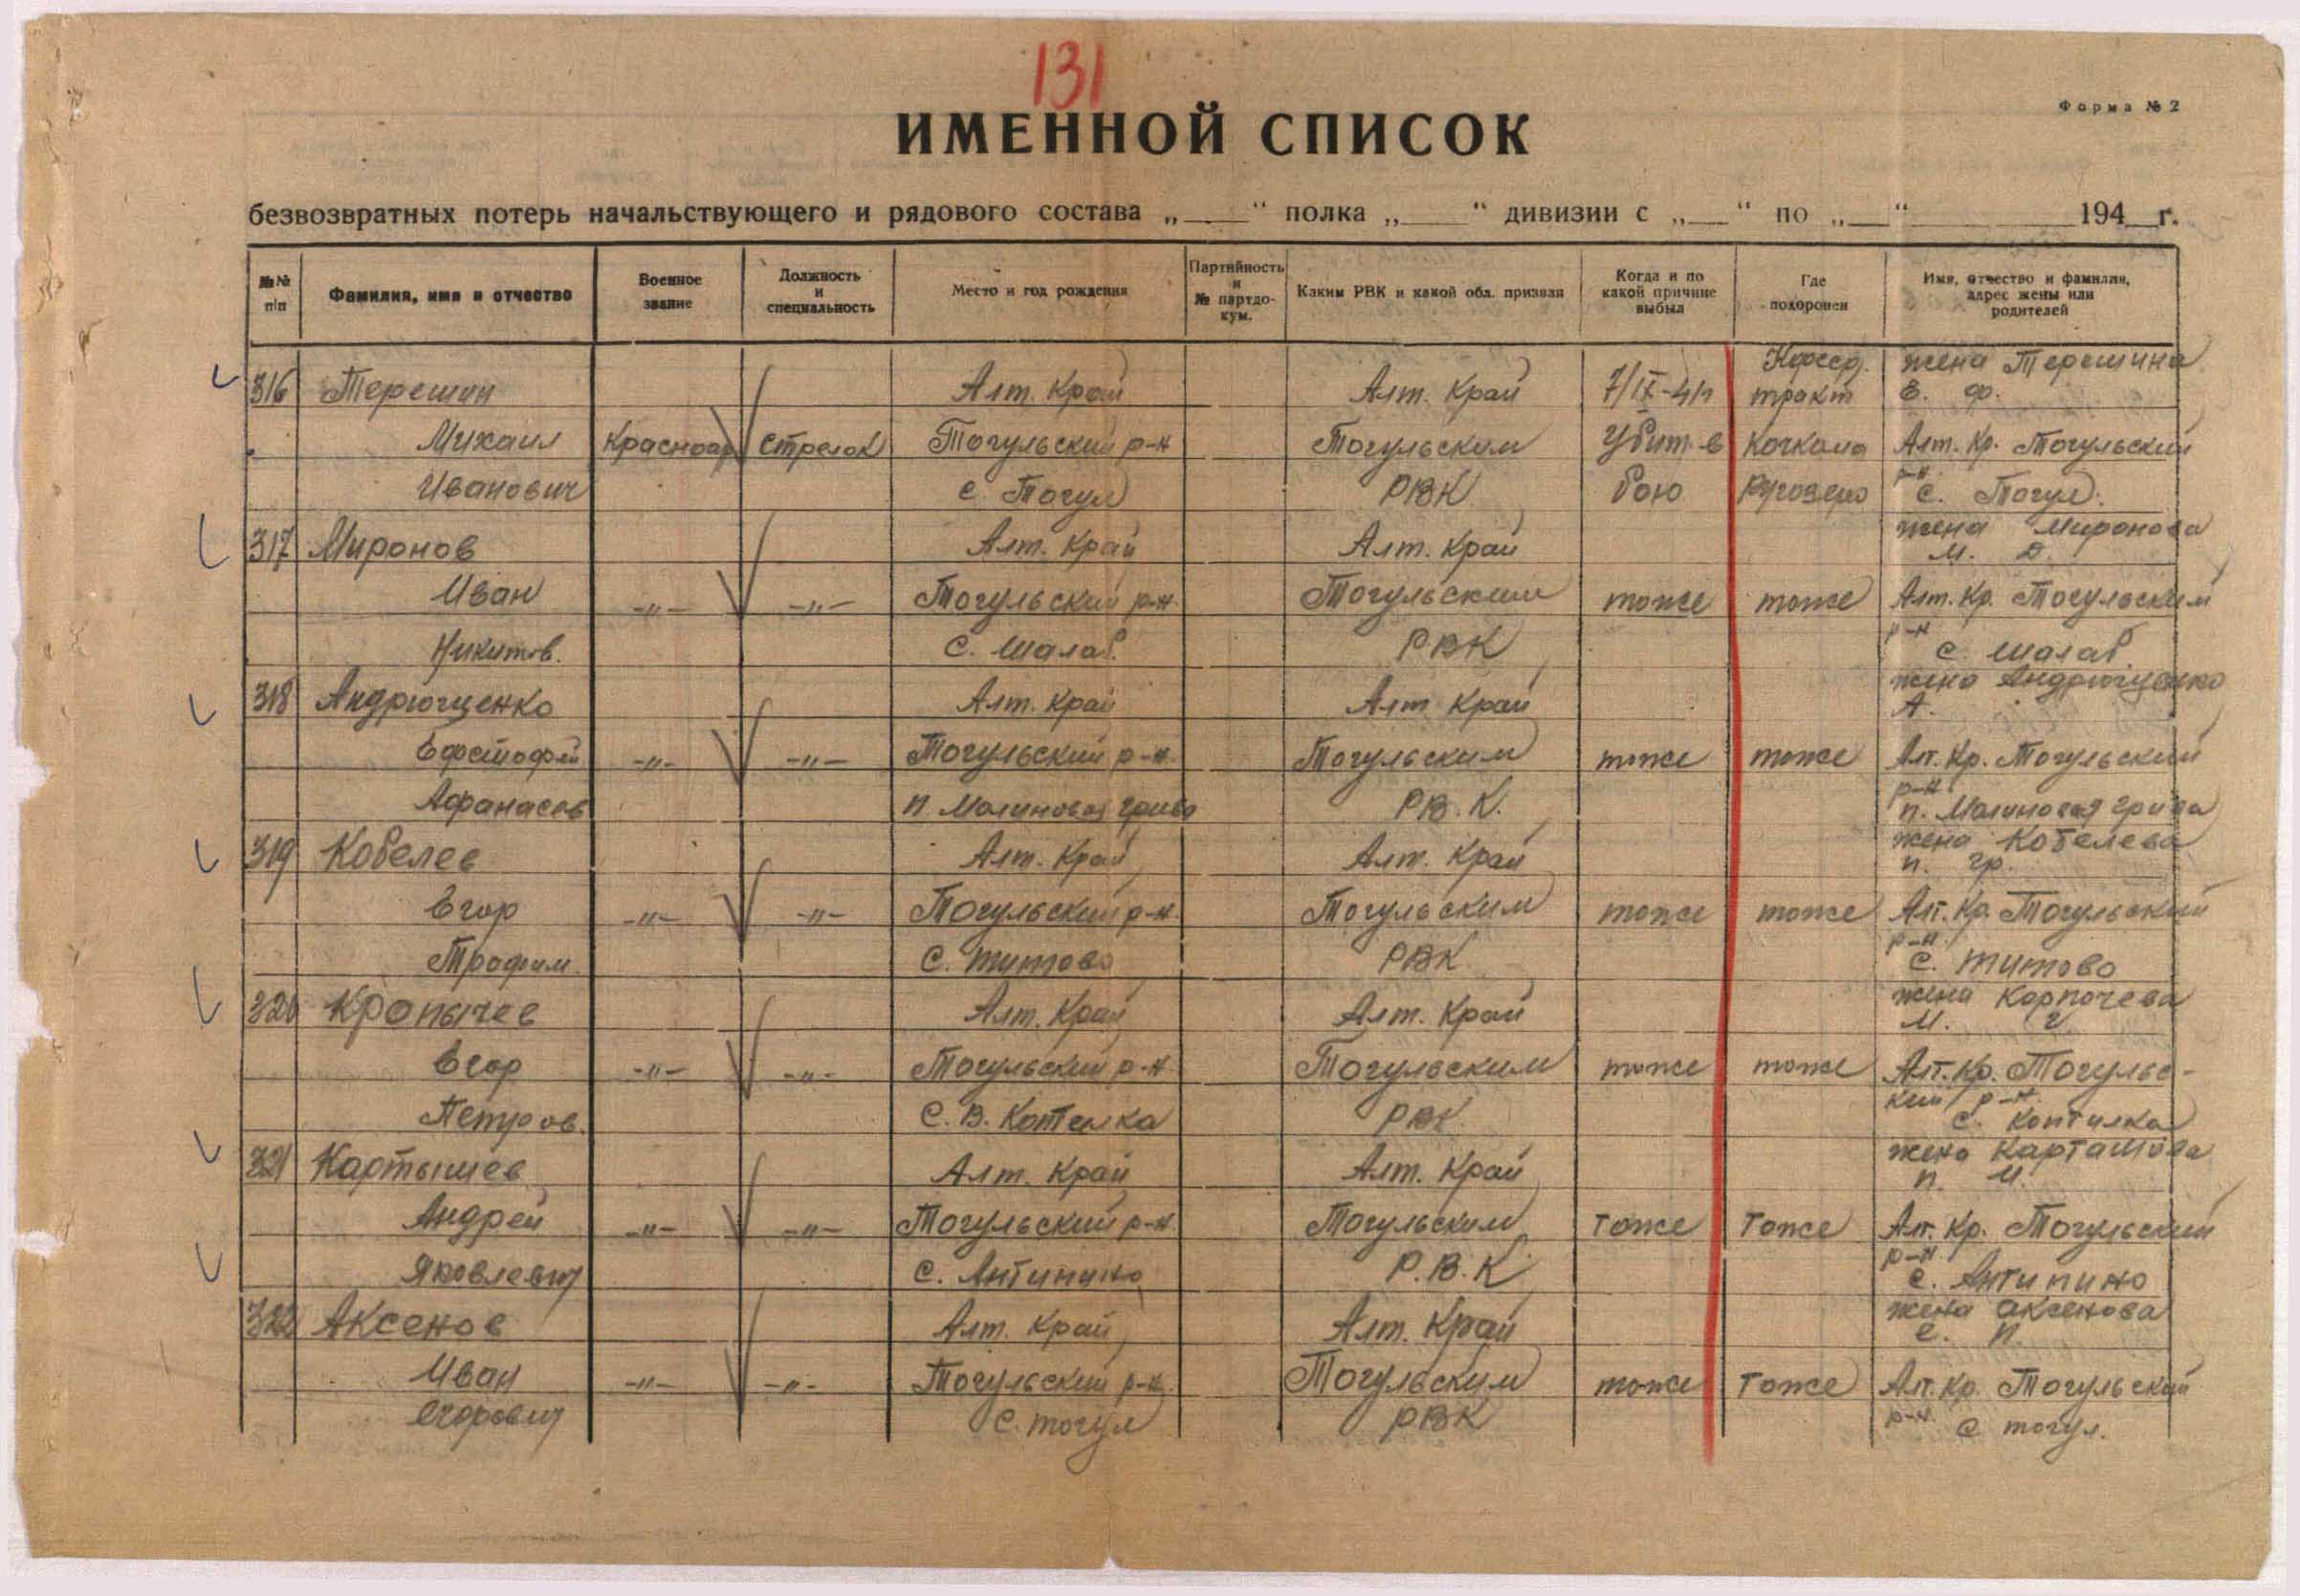 131
Форма № 2
ИМЕННОЙ СПИСОК
безвозвратных потерь начальствующего и рядового состава „____“ полка „____“ дивизии с „___“ по „___“ ________ 194__г.
№№ п/п Фамилия, имя и отчество Военное звание Должность и специальность Место и год рождения Партийность и № партдокум. Каким РВК и какой обл. призван Когда и по какой причине выбыл Где похоронен Имя, отчество и фамилия, адрес жены или родителей
316 Терешин Алт. Край Алт. Край 7/IX-41г тракт жена Терешина Е. Ф.
Михаил Красноар Стрелок Тогульский р-н Тогульским Убит в Кочкома Алт. Кр. Тогульский р-н
Иванович с. Тогул РВК бою Ругозеро с. Тогул.
317 Миронов Алт. Край Алт. Край жена Миронова М. Д.
Иван -„- -„- Тогульский р-н. Тогульским тоже тоже Алт. Кр. Тогульским р-н
Никитов. С. Шалаб. РВК с. Шалаб
318 Андрющенко Алт. Край Алт Край жена Андрющенко А.
Ефстафей -„- -„- Тогульский р-н. Тогульским тоже тоже Ал. Кр. Тогульский р-н
Афанасов п. Малиновая грива РВ.К. п. Малиновая грива
319 Кобелев Алт. Край Алт. Край жена Кобелева П. Гр.
Егор -„- -„- Тогульский р-н. Тогульским тоже тоже Алт. Кр. Тогульский р-н
Трофим. С. Титово РВК с. Титово
320 Кропычев Алт. Край Алт. Край жена Корпочева М. Г
Егор -„- -„- Тогульский р-н. Тогульским тоже тоже Алт. Кр. Тогульс-
Петров. С. В. Коптелка РВК кий р-н. с. Коптилка
321 Картышев Алт. Край Алт. Край жена Карташова П. И.
Андрей -„- -„- Тогульский р-н. Тогульским тоже тоже Алт. Кр. Тогульский р-н
Яковлевич с. Антипино Р.В.К. с. Антипино
322 Аксенов Алт. Край Алт. Край жена Аксенова Е. П.
Иван -„- -„- Тогульский р-н. Тогульским тоже тоже Алт. Кр. Тогульский
Егорович С. Тогул РВК р-н. с Тогул.